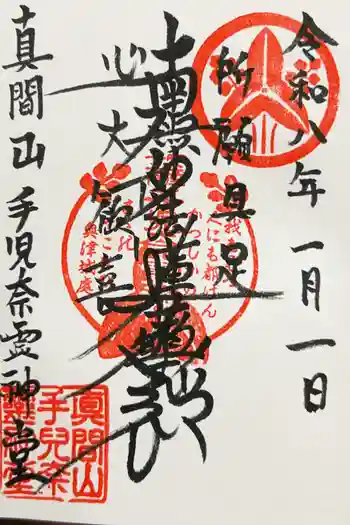 令和八年 一月一日
所願具足
南無妙法蓮華経
心大歓喜
真間山 手児奈霊神堂
真間山
手兒奈
靈神堂